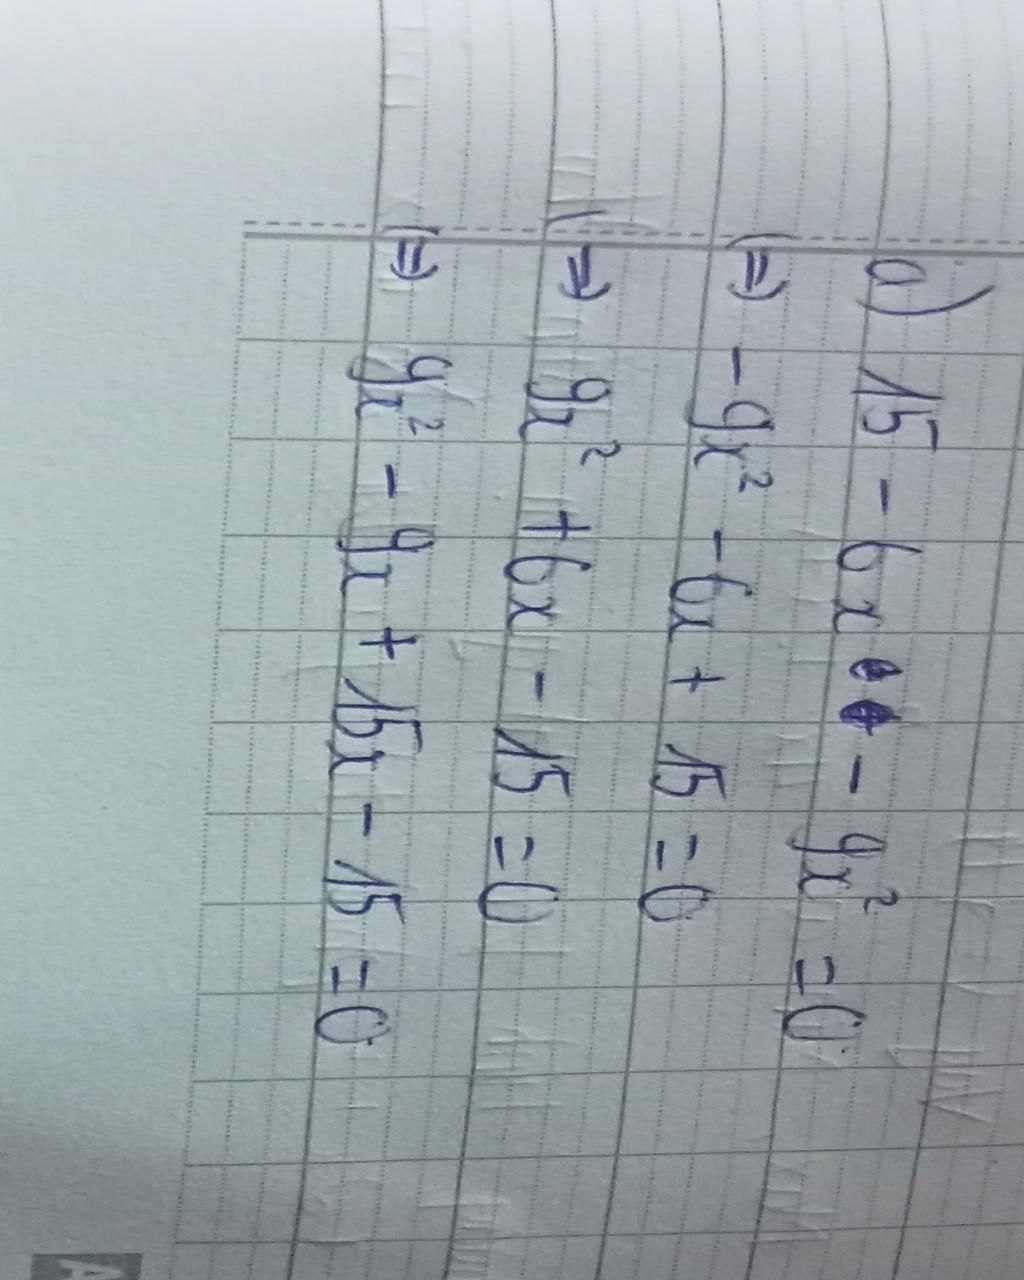 a) 15 - 6x - 9x² = 0
(=) -9x² - 6x + 15 = 0
(=) 9x² + 6x - 15 = 0
(=) 9x² - 9x + 15x - 15 = 0
A